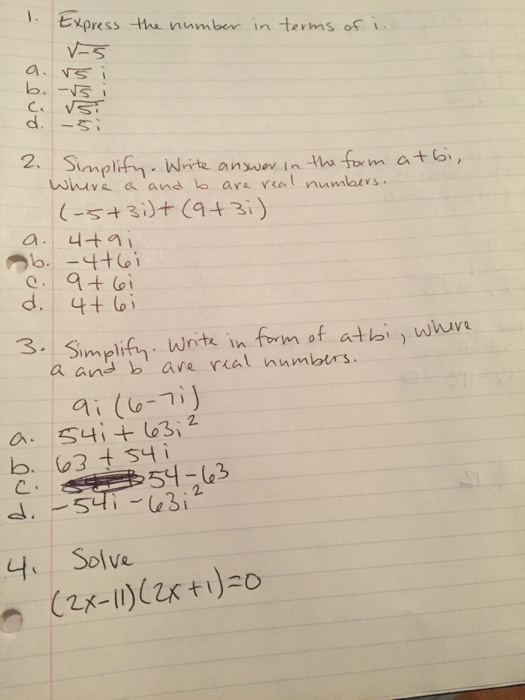 1. Express the number in terms of i.
√-5
a. √5 i
b. -√5 i
c. √5i
d. -5i
2. Simplify. Write answer in the form a+bi,
where a and b are real numbers.
(-5+3i)+(9+3i)
a. 4+9i
b. -4+6i
c. 9+6i
d. 4+6i
3. Simplify. Write in form of a+bi, where
a and b are real numbers.
9i(6-7i)
a. 54i+63i²
b. 63+54i
c. 54-63
d. -54i-63i²
4. Solve
(2x-11)(2x+1)=0